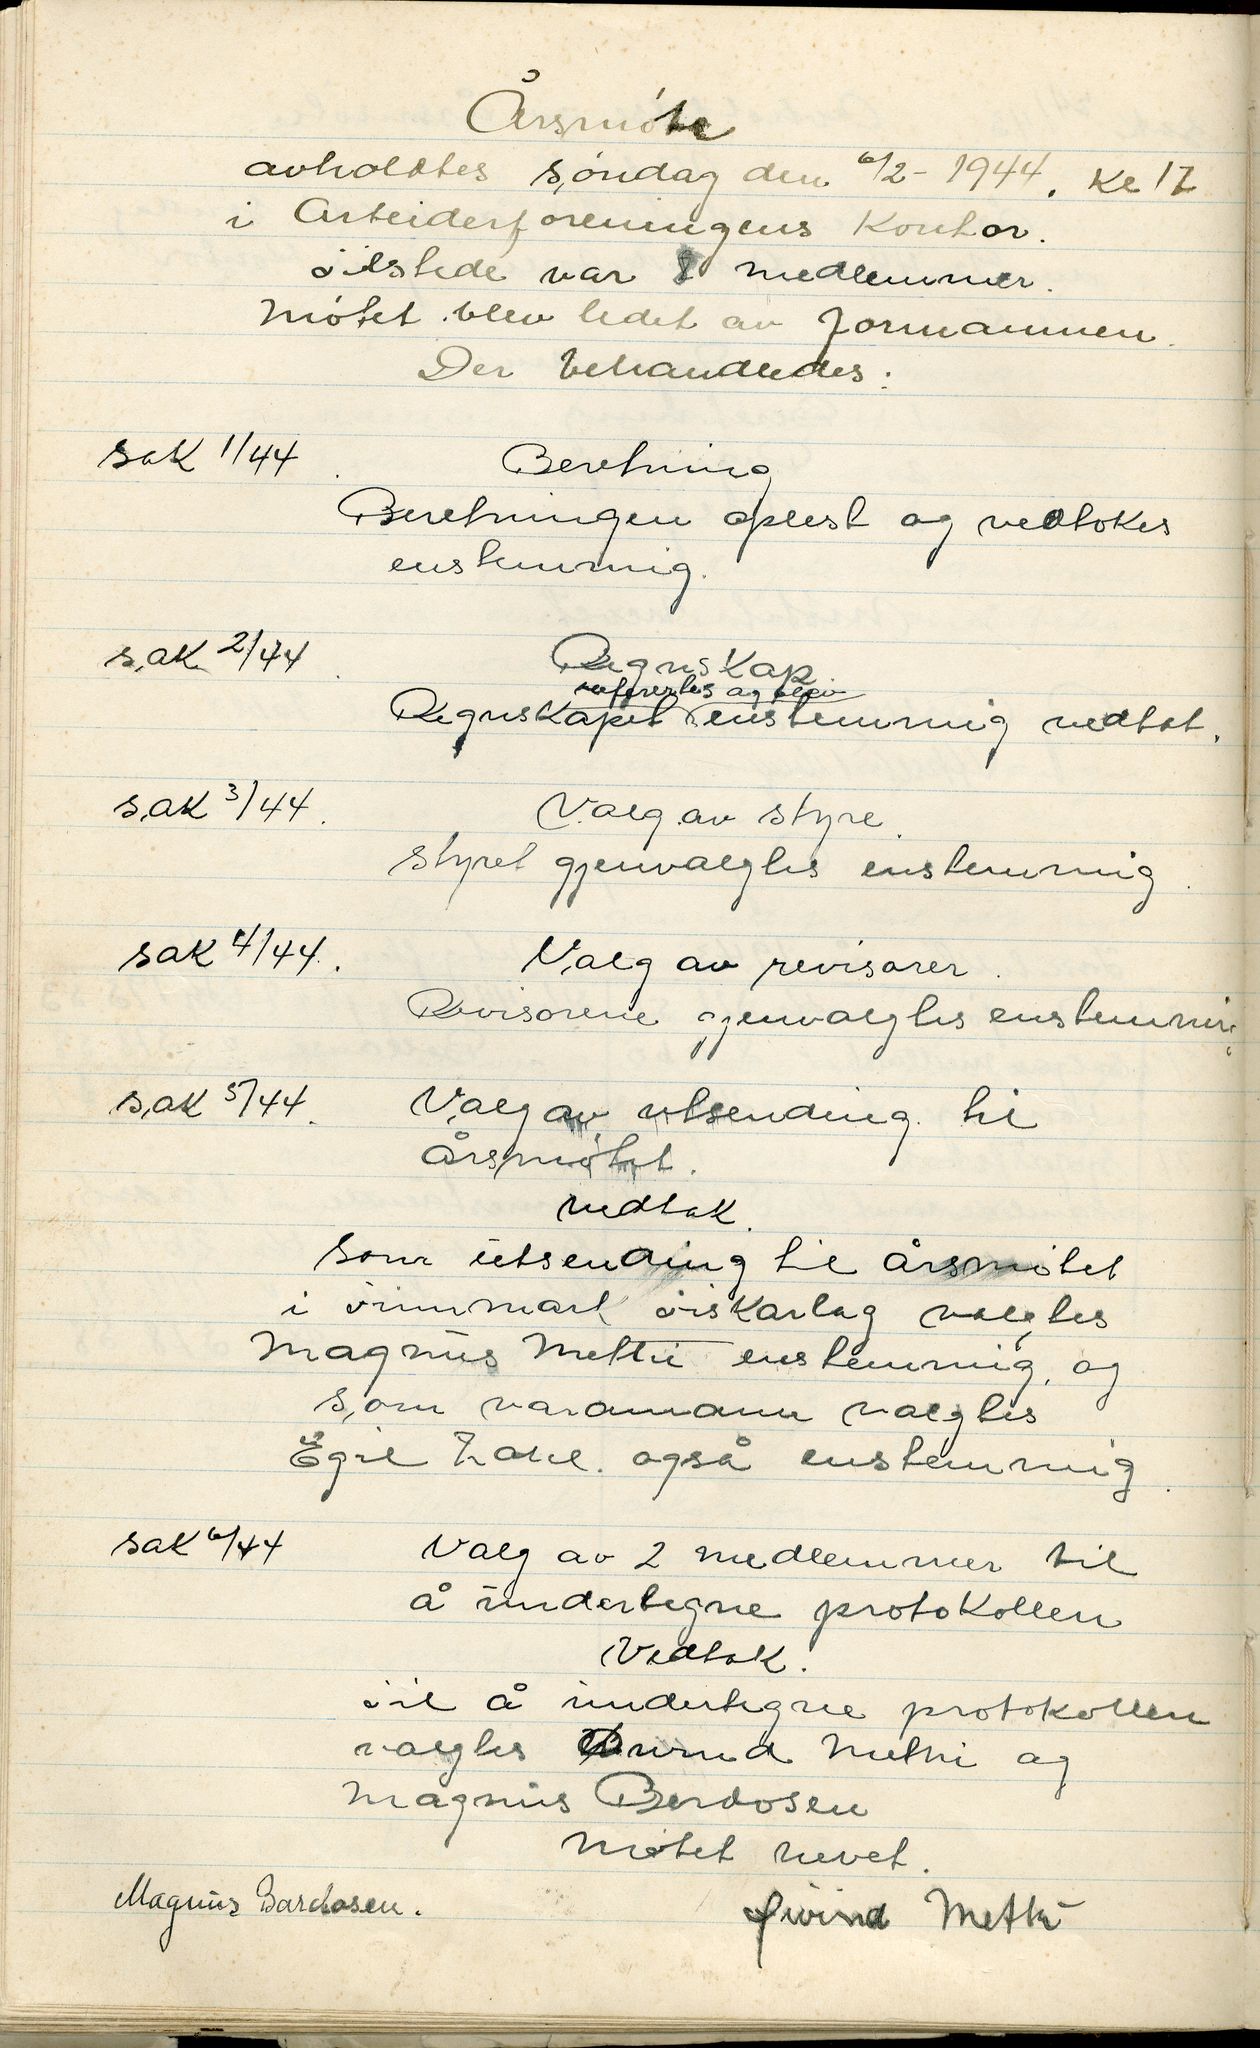 Årsmøte
avholdtes søndag den 6/2 - 1944. Kl 17
i Arbeiderforeningens Kontor.
Tilstede var 8 medlemmer.
Møtet blev ledet av formannen.
Der behandledes:
sak 1/44. Beretning
Beretningen oplest og vedtokes
enstemmig.
sak 2/44. Regnskap
refferertes og blev
Regnskapet enstemmig vedtat.
sak 3/44. Valg av styre.
Styret gjenvalgtes enstemmig.
sak 4/44. Valg av revisorer.
Revisorene gjenvalgtes enstemmig
sak 5/44. Valg av utsending til
årsmøtet.
Vedtak.
Som utsending til årsmøtet
i Finnmark Fiskarlag valgtes
Magnus Metti enstemmig, og
som varamann valgtes
Egil også enstemmig.
sak 6/44 Valg av 2 medlemmer til
å undertegne protokollen
Vedtak.
Til å undertegne protokollen
valgtes Øivind Metti og
Magnus Bardosen
Møtet hevet.
Magnus Bardosen. Øivind Metti